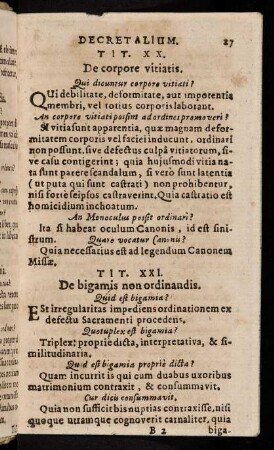 DECRETALIUM. 27
TIT. XX.
De corpore vitiatis.
Qui dicuntur corpore vitiati?
QUi debilitate, deformitate, aut impotentia
membri, vel totius corporis laborant.
An corpore vitiati possint ad ordines promoveri?
Si vitia sunt apparentia, quæ magnam defor
mitatem corporis vel faciei inducunt. ordinari
non possunt, sive defectus culpâ vitiatorum, si-
ve casu contigerint; quia hujusmodi vitia na
ta sunt parere scandalum, si verò sunt latentia
(ut puta qui sunt castrati) non prohibentur,
nisi fortè seipsos castraverint. Quia castratio est
homicidium inchoatum.
An Monoculus possit ordinari?
Ita si habeat oculum Canonis, id est sini-
strum. Quare vocatur Canonis?
Quia necessarius est ad legendum Canonem
Missæ.
TIT. XXI.
De bigamis non ordinandis.
Quid est bigamia?
Est irregularitas impediens ordinationem ex
defectu Sacramenti procedens.
Quotuplex est bigamia?
Triplex: propriè dicta, interpretativa, & si-
militudinaria.
Quid est bigamia propriè dicta?
Quam incurrit is qui cum duabus uxoribus
matrimonium contraxit, & consummavit.
Cur dicis consummavit.
Quia non sufficit bis nuptias contraxisse, nisi
quoque utramque cognoverit carnaliter, quia
B 2 biga-